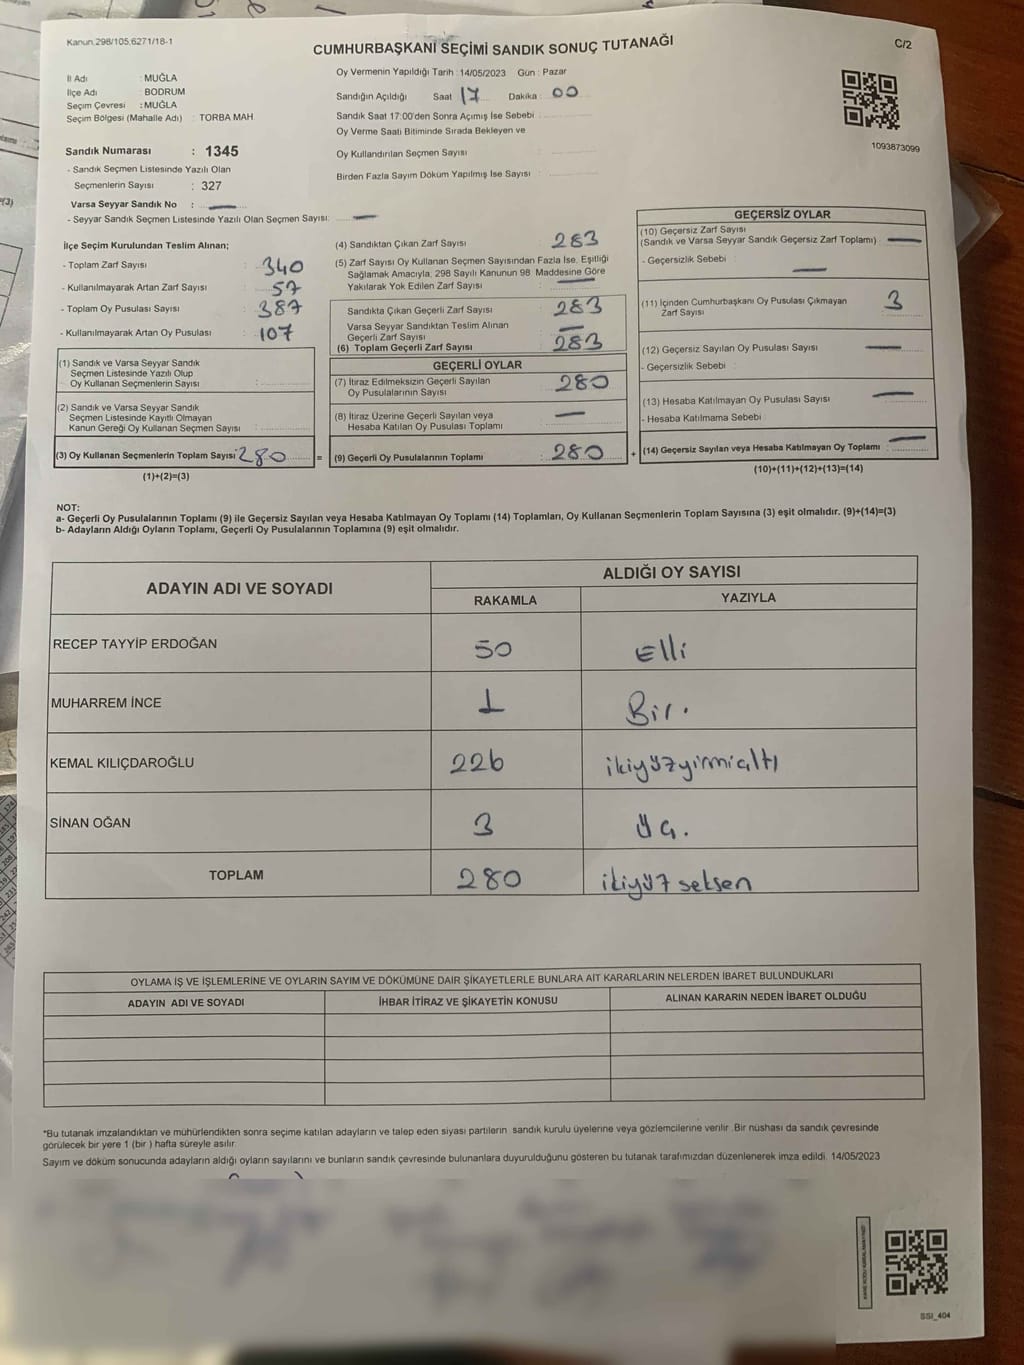 Kanun.298/105;6271/18-1
CUMHURBAŞKANI SEÇİMİ SANDIK SONUÇ TUTANAĞI
C/2
İl Adı : MUĞLA
İlçe Adı : BODRUM
Seçim Çevresi : MUĞLA
Seçim Bölgesi (Mahalle Adı) : TORBA MAH
Oy Vermenin Yapıldığı Tarih : 14/05/2023 Gün : Pazar
Sandığın Açıldığı Saat 17 Dakika : 00
Sandık Saat 17:00'den Sonra Açımış İse Sebebi :
Oy Verme Saati Bitiminde Sırada Bekleyen ve
Oy Kullandırılan Seçmen Sayısı :
Birden Fazla Sayım Döküm Yapılmış İse Sayısı :
1093873099
Sandık Numarası : 1345
- Sandık Seçmen Listesinde Yazılı Olan
Seçmenlerin Sayısı : 327
Varsa Seyyar Sandık No : —
- Seyyar Sandık Seçmen Listesinde Yazılı Olan Seçmen Sayısı: —
İlçe Seçim Kurulundan Teslim Alınan;
- Toplam Zarf Sayısı : 340
- Kullanılmayarak Artan Zarf Sayısı : 57
- Toplam Oy Pusulası Sayısı : 387
- Kullanılmayarak Artan Oy Pusulası : 107
(1) Sandık ve Varsa Seyyar Sandık
Seçmen Listesinde Yazılı Olup
Oy Kullanan Seçmenlerin Sayısı :
(2) Sandık ve Varsa Seyyar Sandık
Seçmen Listesinde Kayıtlı Olmayan
Kanun Gereği Oy Kullanan Seçmen Sayısı :
(3) Oy Kullanan Seçmenlerin Toplam Sayısı 280 =
(1)+(2)=(3)
(4) Sandıktan Çıkan Zarf Sayısı : 283
(5) Zarf Sayısı Oy Kullanan Seçmen Sayısından Fazla İse, Eşitliği
Sağlamak Amacıyla, 298 Sayılı Kanunun 98. Maddesine Göre
Yakılarak Yok Edilen Zarf Sayısı : —
Sandıkta Çıkan Geçerli Zarf Sayısı : 283
Varsa Seyyar Sandıktan Teslim Alınan
Geçerli Zarf Sayısı : —
(6) Toplam Geçerli Zarf Sayısı : 283
GEÇERLİ OYLAR
(7) İtiraz Edilmeksizin Geçerli Sayılan
Oy Pusulalarının Sayısı : 280
(8) İtiraz Üzerine Geçerli Sayılan veya
Hesaba Katılan Oy Pusulası Toplamı : —
(9) Geçerli Oy Pusulalarının Toplamı : 280 +
GEÇERSİZ OYLAR
(10) Geçersiz Zarf Sayısı
(Sandık ve Varsa Seyyar Sandık Geçersiz Zarf Toplamı) : —
- Geçersizlik Sebebi : —
(11) İçinden Cumhurbaşkanı Oy Pusulası Çıkmayan
Zarf Sayısı : 3
(12) Geçersiz Sayılan Oy Pusulası Sayısı : —
- Geçersizlik Sebebi :
(13) Hesaba Katılmayan Oy Pusulası Sayısı : —
- Hesaba Katılmama Sebebi :
(14) Geçersiz Sayılan veya Hesaba Katılmayan Oy Toplamı : —
(10)+(11)+(12)+(13)=(14)
NOT:
a- Geçerli Oy Pusulalarının Toplamı (9) ile Geçersiz Sayılan veya Hesaba Katılmayan Oy Toplamı (14) Toplamları, Oy Kullanan Seçmenlerin Toplam Sayısına (3) eşit olmalıdır. (9)+(14)=(3)
b- Adayların Aldığı Oyların Toplamı, Geçerli Oy Pusulalarının Toplamına (9) eşit olmalıdır.
ADAYIN ADI VE SOYADI
ALDIĞI OY SAYISI
RAKAMLA YAZIYLA
RECEP TAYYİP ERDOĞAN 50 Elli
MUHARREM İNCE 1 Bir.
KEMAL KILIÇDAROĞLU 226 ikiyüzyirmialtı
SİNAN OĞAN 3 üç.
TOPLAM 280 ikiyüz seksen
OYLAMA İŞ VE İŞLEMLERİNE VE OYLARIN SAYIM VE DÖKÜMÜNE DAİR ŞİKAYETLERLE BUNLARA AİT KARARLARIN NELERDEN İBARET BULUNDUKLARI
ADAYIN ADI VE SOYADI İHBAR İTİRAZ VE ŞİKAYETİN KONUSU ALINAN KARARIN NEDEN İBARET OLDUĞU
*Bu tutanak imzalandıktan ve mühürlendikten sonra seçime katılan adayların ve talep eden siyası partilerin sandık kurulu üyelerine veya gözlemcilerine verilir. Bir nüshası da sandık çevresinde
görülecek bir yere 1 (bir ) hafta süreyle asılır.
Sayım ve döküm sonucunda adayların aldığı oyların sayılarını ve bunların sandık çevresinde bulunanlara duyurulduğunu gösteren bu tutanak tarafımızdan düzenlenerek imza edildi. 14/05/2023
SSI_404